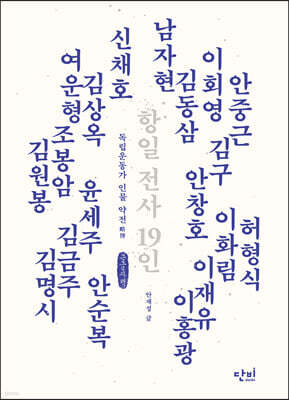 안중근
이회영
김구
남자현
김동삼
안창호
허형식
이화림
이재유
이홍광
항일 전사 19인
독립운동가 인물 약전
안재성 글
신채호
김상옥
여운형
조봉암
김원봉
윤세주
김금주
김명시
안순복
단비